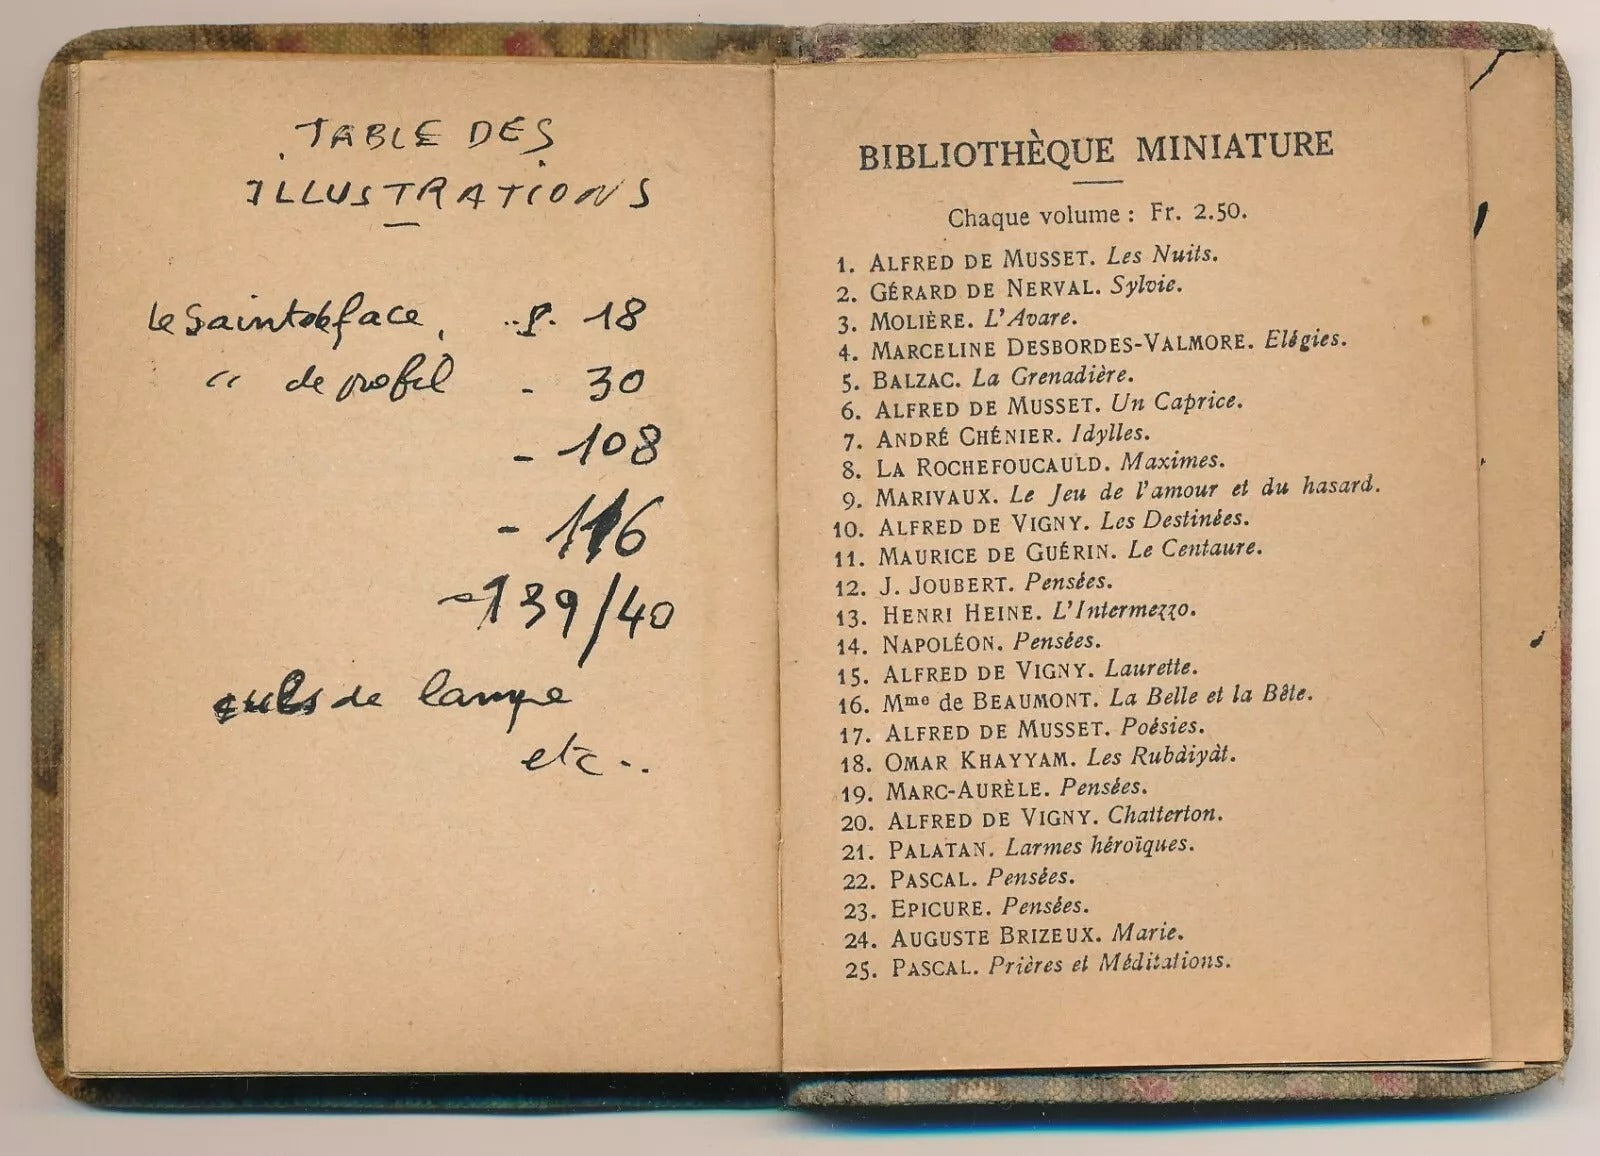 TABLE DES
ILLUSTRATIONS
le Saint de face, .. p. 18
" de profil - 30
- 108
- 116
- 139/40
culs de lampe
etc..
BIBLIOTHÈQUE MINIATURE
Chaque volume : Fr. 2.50.
1. ALFRED DE MUSSET. Les Nuits.
2. GÉRARD DE NERVAL. Sylvie.
3. MOLIÈRE. L'Avare.
4. MARCELINE DESBORDES-VALMORE. Elégies.
5. BALZAC. La Grenadière.
6. ALFRED DE MUSSET. Un Caprice.
7. ANDRÉ CHÉNIER. Idylles.
8. LA ROCHEFOUCAULD. Maximes.
9. MARIVAUX. Le Jeu de l'amour et du hasard.
10. ALFRED DE VIGNY. Les Destinées.
11. MAURICE DE GUÉRIN. Le Centaure.
12. J. JOUBERT. Pensées.
13. HENRI HEINE. L'Intermezzo.
14. NAPOLÉON. Pensées.
15. ALFRED DE VIGNY. Laurette.
16. Mme de BEAUMONT. La Belle et la Bête.
17. ALFRED DE MUSSET. Poésies.
18. OMAR KHAYYAM. Les Rubâiyât.
19. MARC-AURÈLE. Pensées.
20. ALFRED DE VIGNY. Chatterton.
21. PALATAN. Larmes héroïques.
22. PASCAL. Pensées.
23. EPICURE. Pensées.
24. AUGUSTE BRIZEUX. Marie.
25. PASCAL. Prières et Méditations.